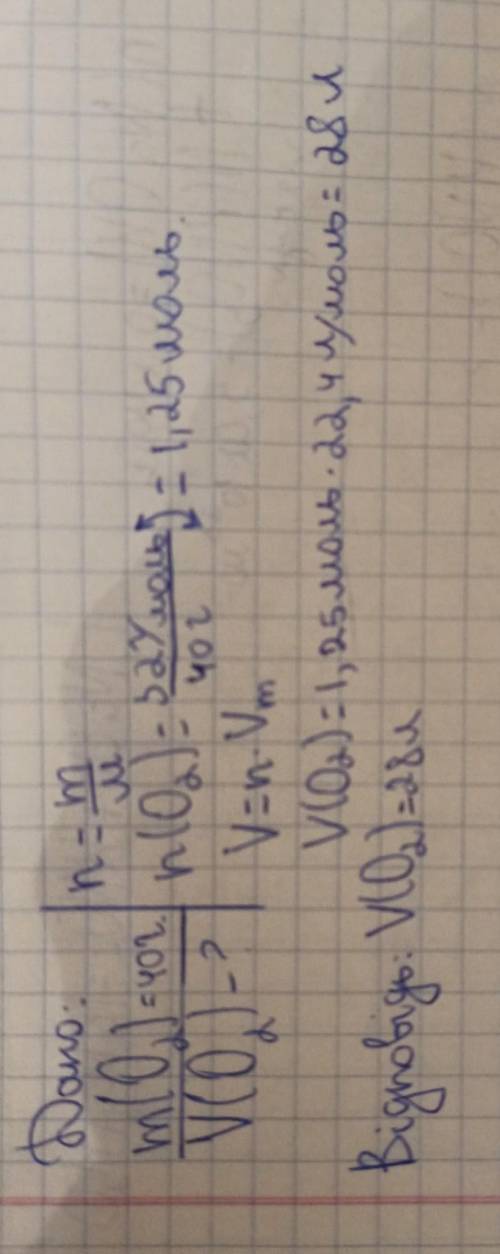 Дано:
m(O₂)=40г.
V(O₂)-?
n = m/M
n(O₂) = 32г/моль/40г = 1,25 моль.
V=n·Vm
V(O₂)=1,25 моль·22,4 л/моль= 28 л
Відповідь: V(O₂)=28л